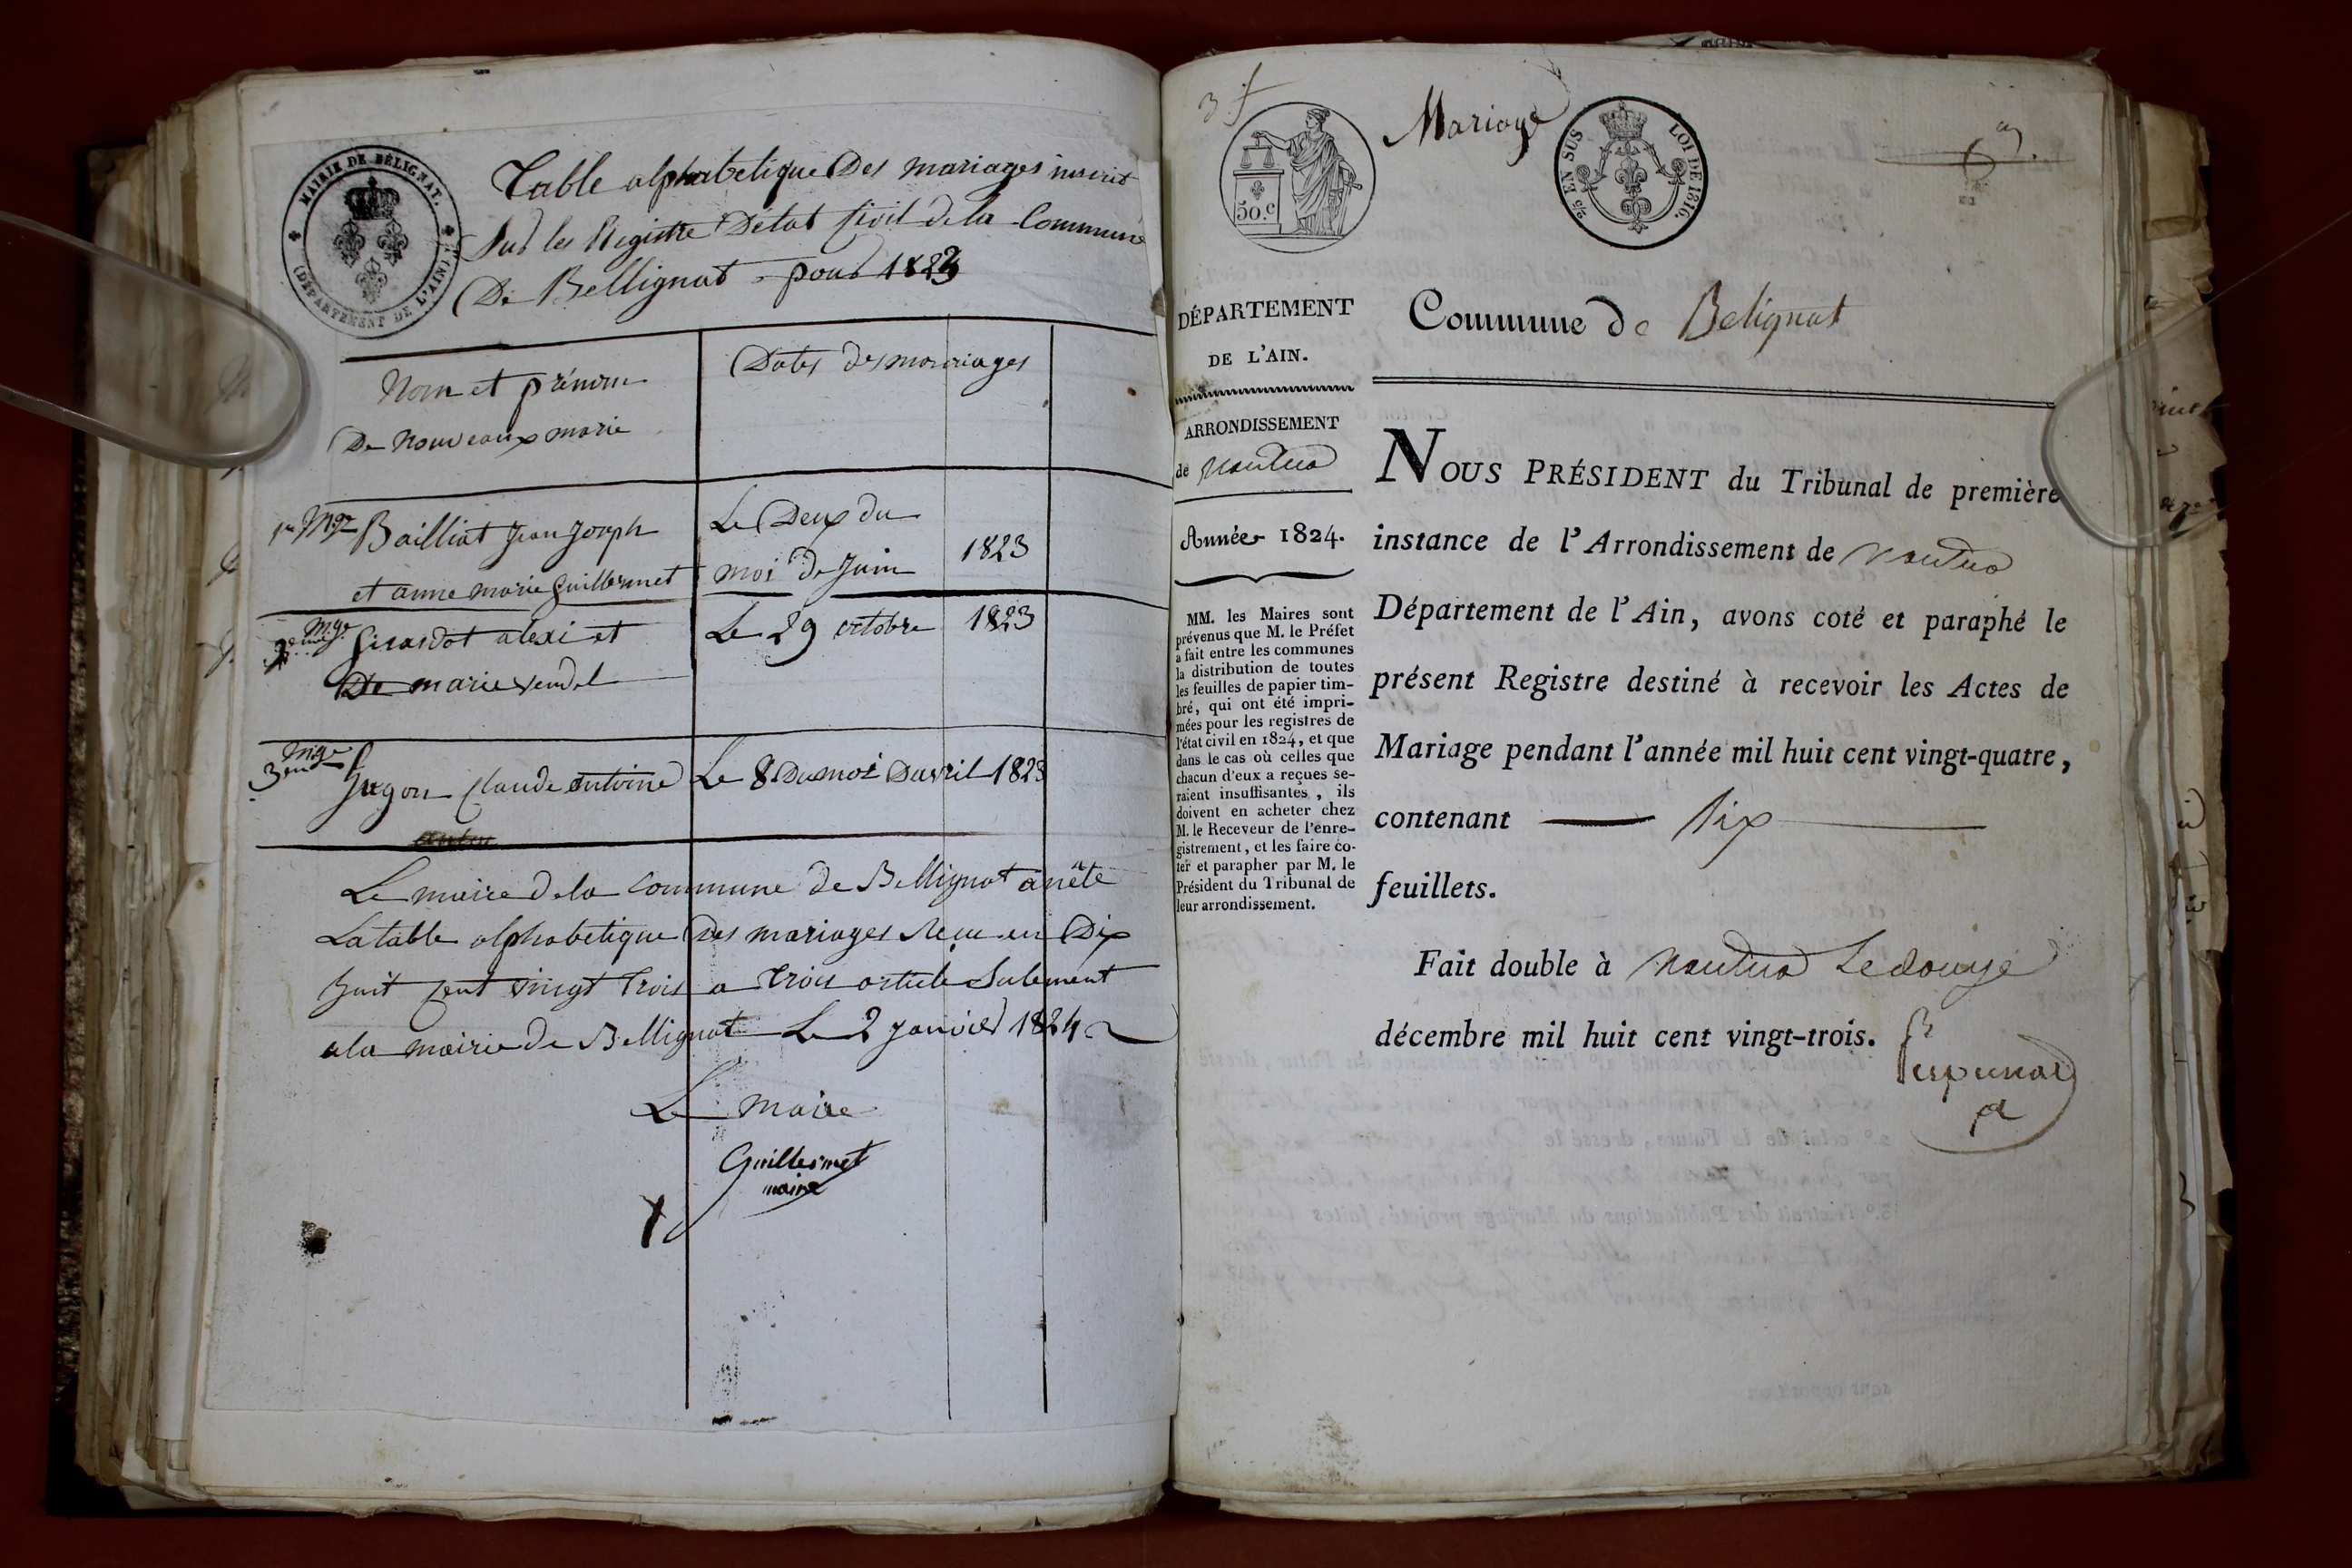 MAIRIE DE BÉLIGNAT.
(DÉPARTEMENT DE L'AIN)
Table alphabetique Des mariages inscrit
Sur les Registre Détat Civil de la Commune
De Bellignat pour 1823
Nom et prénom
De Nouveaux marie
Dates des marriages
1er Mge Bailliat Jean Joseph
et anne marie Guillermet
Le Deux du
moi de Juin 1823
2eme mge Girardot alexi et
De marie vendel
Le 29 octobre 1823
3eme mge Jugon Claude antoine
Le 8 Du moi Davril 1823
Le maire de la Commune de Bellignat arrête
La table alphabetique Des mariages Recu en Dix
huit Cent vingt trois a trois article Sulement
a la mairie de Bellignat Le 2 janvier 1824
Le maire
Guillermet
maire
3 f
Mariage
50.c
2/5 EN SUS
LOI DE 1816.
DÉPARTEMENT
DE L'AIN.
ARRONDISSEMENT
de Nantua
Année 1824.
MM. les Maires sont
prévenus que M. le Préfet
a fait entre les communes
la distribution de toutes
les feuilles de papier tim-
bré, qui ont été impri-
mées pour les registres de
l'état civil en 1824, et que
dans le cas où celles que
chacun d'eux a reçues se-
raient insuffisantes, ils
doivent en acheter chez
M. le Receveur de l'enre-
gistrement, et les faire co-
ter et parapher par M. le
Président du Tribunal de
leur arrondissement.
Commune de Belignat
NOUS PRÉSIDENT du Tribunal de première
instance de l'Arrondissement de Nantua
Département de l'Ain, avons coté et paraphé le
présent Registre destiné à recevoir les Actes de
Mariage pendant l'année mil huit cent vingt-quatre,
contenant Six
feuillets.
Fait double à Nantua Le douze
décembre mil huit cent vingt-trois.